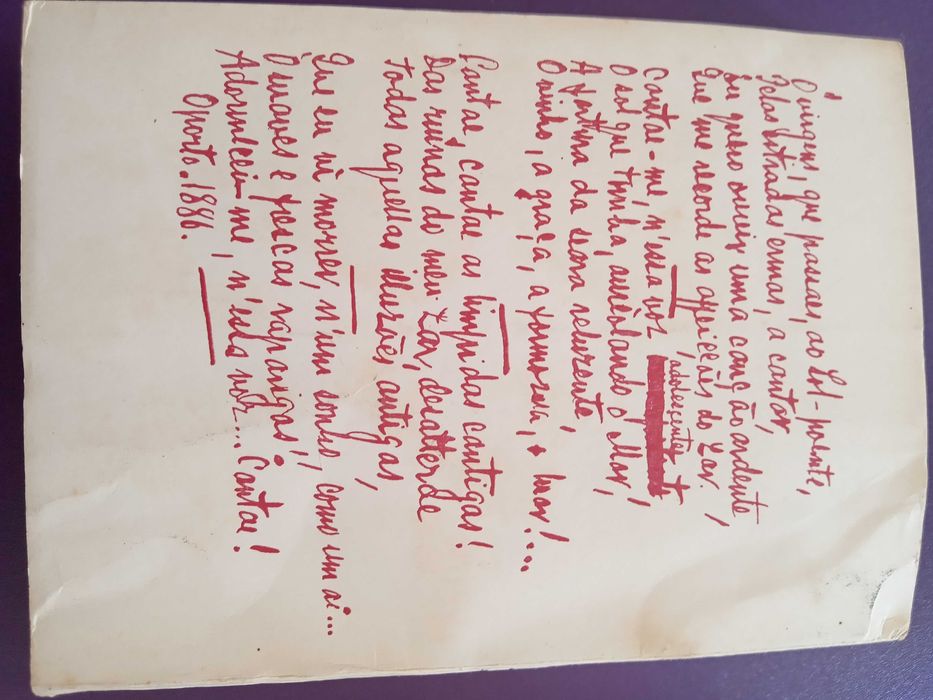 Ó virgens! que passaes, ao Sol-poente,
Pelas estradas ermas, a cantar,
Eu quero ouvir uma canção ardente
Que me recorde as affeições do Lar.
Cantae-me, n'essa voz adolescente,
O sol que tomba, aureolando o Mar,
A fartura da seara reluzente,
O vinho, a graça, a formosura, o luar!...
Cantae, cantae as limpidas cantigas!
Das ruinas do meu Lar, desatterae
Todas aquellas illuzões antigas,
Que eu vi morrer, n'um sonho, como um ai...
Ó suaves e frescas raparigas!
Adormecei-me, n'essa voz... Cantae!
Oporto. 1886.